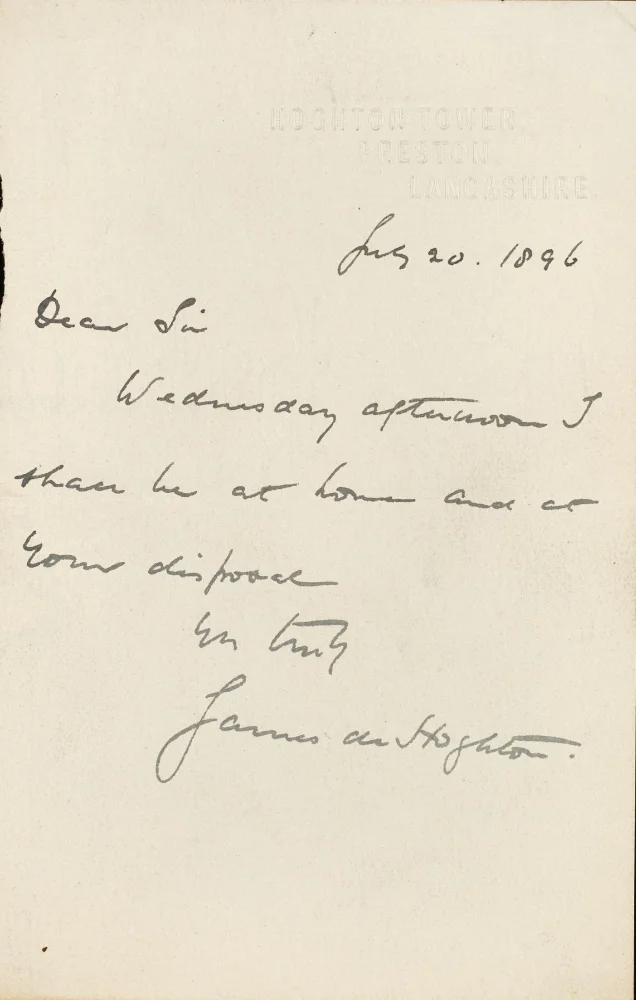 HOGHTON TOWER,
PRESTON,
LANCASHIRE.
July 20. 1896
Dear Sir
Wednesday afternoon I
shall be at home and at
your disposal
Yrs truly
James de Hoghton.